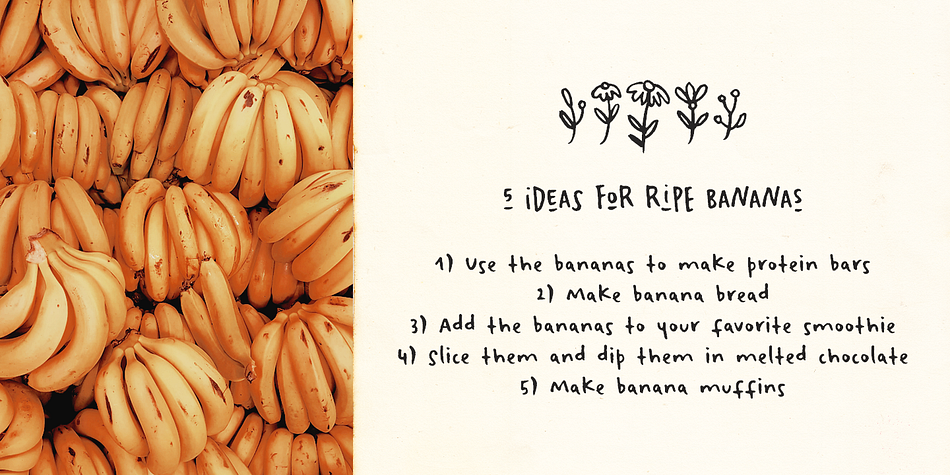 5 iDEAS FOR RiPE BANANAS
1) Use the bananas to make protein bars
2) Make banana bread
3) Add the bananas to your favorite smoothie
4) Slice them and dip them in melted chocolate
5) Make banana muffins